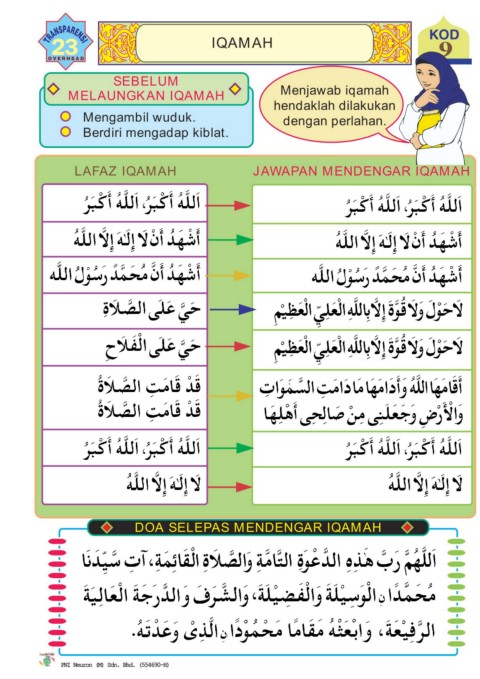 TRANSPARENSI
23
OVERHEAD
IQAMAH
KOD
9
SEBELUM
MELAUNGKAN IQAMAH
Mengambil wuduk.
Berdiri mengadap kiblat.
Menjawab iqamah
hendaklah dilakukan
dengan perlahan.
LAFAZ IQAMAH
JAWAPAN MENDENGAR IQAMAH
اَللَّهُ أَكْبَرُ، اَللَّهُ أَكْبَرُ
اَللَّهُ أَكْبَرُ، اَللَّهُ أَكْبَرُ
أَشْهَدُ أَنْ لَا إِلٰهَ إِلَّا اللَّهُ
أَشْهَدُ أَنْ لَا إِلٰهَ إِلَّا اللَّهُ
أَشْهَدُ أَنَّ مُحَمَّدً رَسُوْلُ اللَّه
أَشْهَدُ أَنَّ مُحَمَّدً رَسُوْلُ اللَّه
حَيَّ عَلَى الصَّلَاةِ
لَاحَوْلَ وَلَا قُوَّةَ إِلَّا بِاللَّهِ الْعَلِيِّ الْعَظِيْمِ
حَيَّ عَلَى الْفَلَاحِ
لَاحَوْلَ وَلَا قُوَّةَ إِلَّا بِاللَّهِ الْعَلِيِّ الْعَظِيْمِ
قَدْ قَامَتِ الصَّلَاةُ
قَدْ قَامَتِ الصَّلَاةُ
أَقَامَهَا اللَّهُ وَأَدَامَهَا مَادَامَتِ السَّمَوَاتِ
وَالْأَرْضِ وَجَعَلَنِى مِنْ صَالِحِى أَهْلِهَا
اَللَّهُ أَكْبَرُ، اَللَّهُ أَكْبَرُ
اَللَّهُ أَكْبَرُ، اَللَّهُ أَكْبَرُ
لَا إِلٰهَ إِلَّا اللَّهُ
لَا إِلٰهَ إِلَّا اللَّهُ
DOA SELEPAS MENDENGAR IQAMAH
اَللَّهُمَّ رَبَّ هٰذِهِ الدَّعْوَةِ التَّامَّةِ وَالصَّلَاةِ الْقَائِمَةِ، آتِ سَيِّدَنَا
مُحَمَّدًا نِ الْوَسِيْلَةَ وَالْفَضِيْلَةَ، وَالشَّرَفَ وَالدَّرَجَةَ الْعَالِيَةَ
الرَّفِيْعَةَ، وَابْعَثْهُ مَقَامًا مَحْمُوْدًا نِ الَّذِىْ وَعَدْتَهُ.
PNI Neuron (M) Sdn. Bhd. (554690-H)